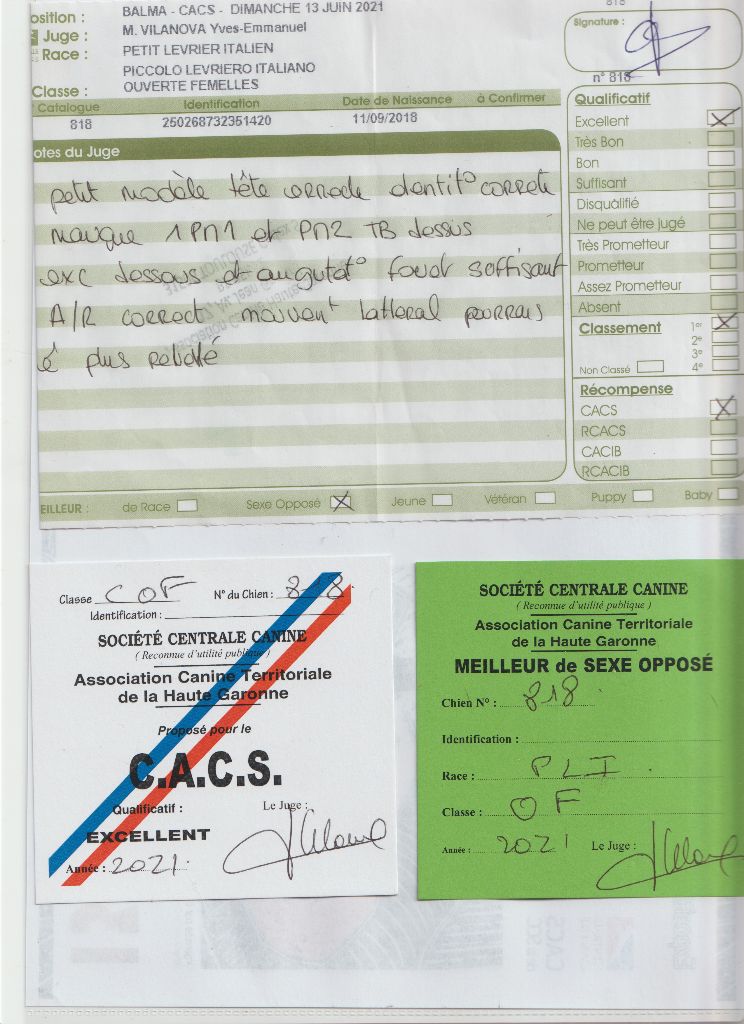 818
osition : BALMA - CACS - DIMANCHE 13 JUIN 2021
Juge : M. VILANOVA Yves-Emmanuel
Race : PETIT LEVRIER ITALIEN
PICCOLO LEVRIERO ITALIANO
Classe : OUVERTE FEMELLES
Signature :
n° 818
Catalogue Identification Date de Naissance à Confirmer
818 250268732351420 11/09/2018
otes du Juge
petit modèle tête correcte dentit° correcte
manque 1PM1 et PM2 TB dessus
exc dessous et angulat° fouet suffisant
A/R correct mouvent latteral pourrais
ê plus relevé
Qualificatif
Excellent
Très Bon
Bon
Suffisant
Disqualifié
Ne peut être jugé
Très Prometteur
Prometteur
Assez Prometteur
Absent
Classement 1er
2e
3e
Non Classé 4e
Récompense
CACS
RCACS
CACIB
RCACIB
EILLEUR : de Race Sexe Opposé Jeune Vétéran Puppy Baby
Classe COF N° du Chien : 818
Identification :
SOCIÉTÉ CENTRALE CANINE
( Reconnue d'utilité publique )
Association Canine Territoriale
de la Haute Garonne
Proposé pour le
C.A.C.S.
Qualificatif : Le Juge :
EXCELLENT
Année : 2021
SOCIÉTÉ CENTRALE CANINE
( Reconnue d'utilité publique )
Association Canine Territoriale
de la Haute Garonne
MEILLEUR de SEXE OPPOSÉ
Chien N° : 818
Identification :
Race : PLI
Classe : OF
Année : 2021 Le Juge :